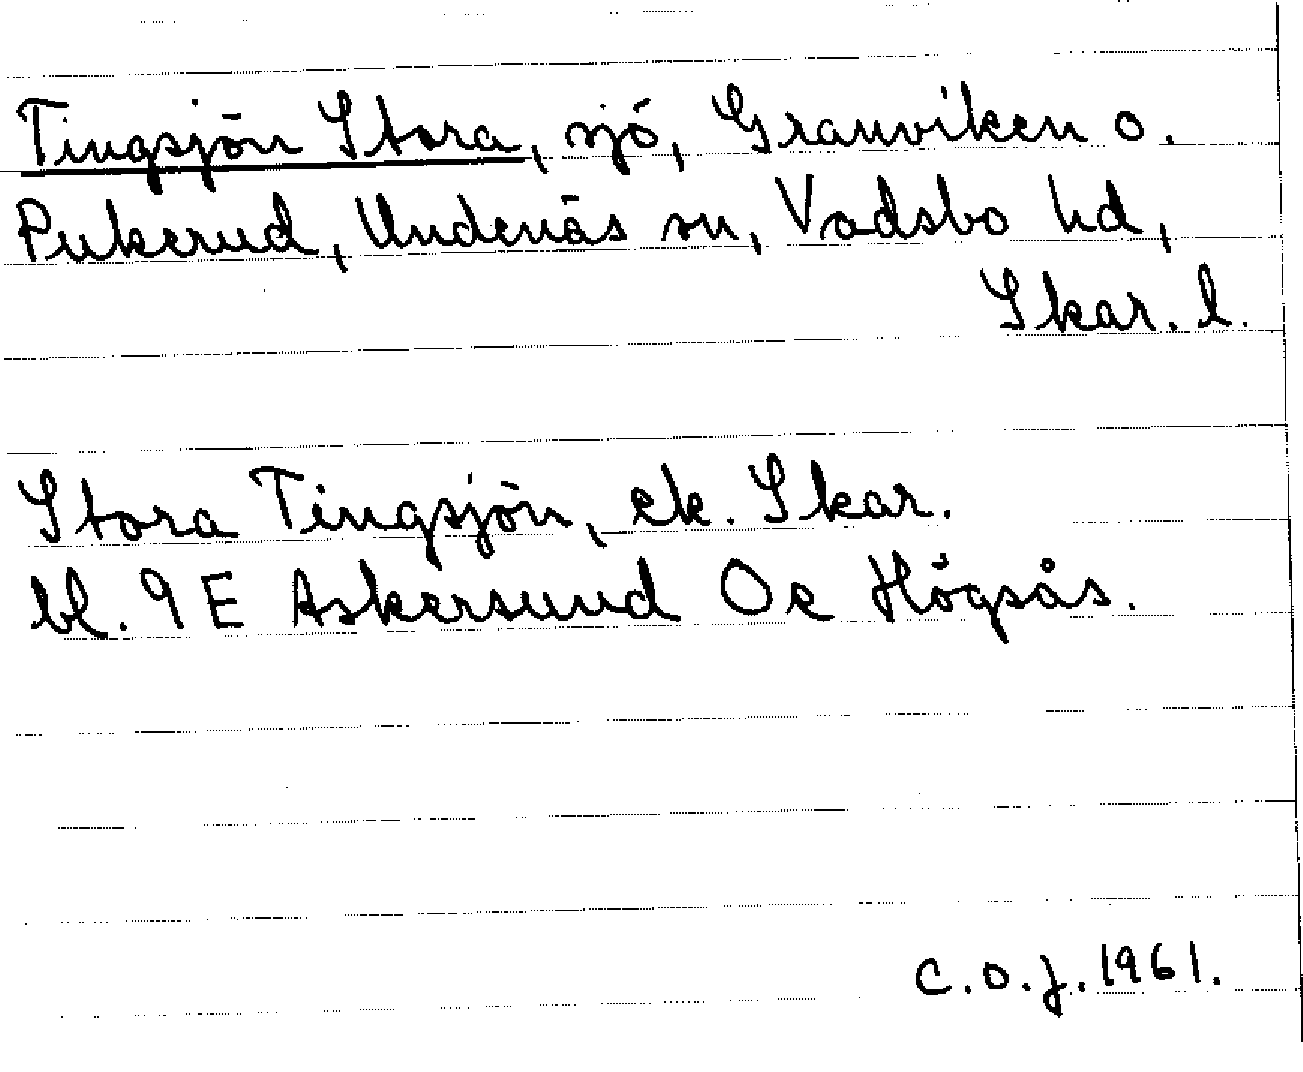 Tingsjön Stora, sjö, Granviken o.
Pukerud, Undenäs sn, Vadsbo hd,
Skar. l.
Stora Tingsjön, ek. Skar.
bl. 9 E Askersund Oe Högsås.
C.O.J. 1961.